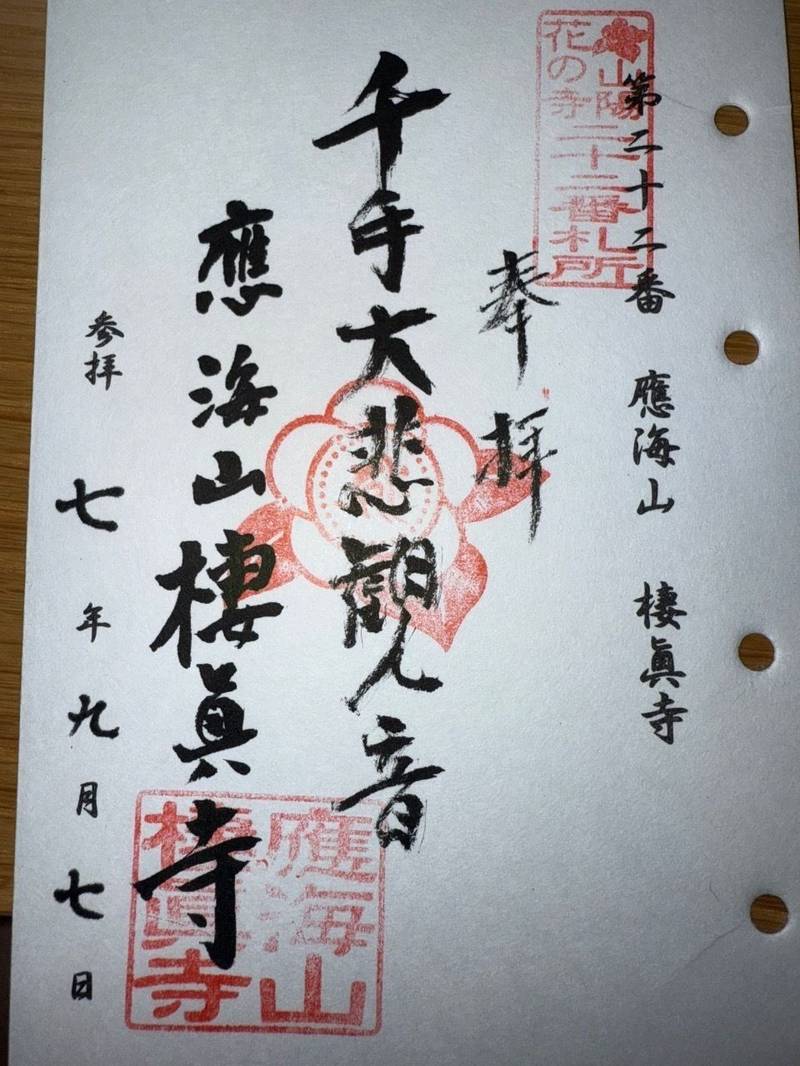 山陽
花の寺
二十二番札所
第二十二番 應海山 棲眞寺
奉拝
千手大悲観音
應海山棲眞寺
應海山
棲眞寺
参拝 七年九月七日